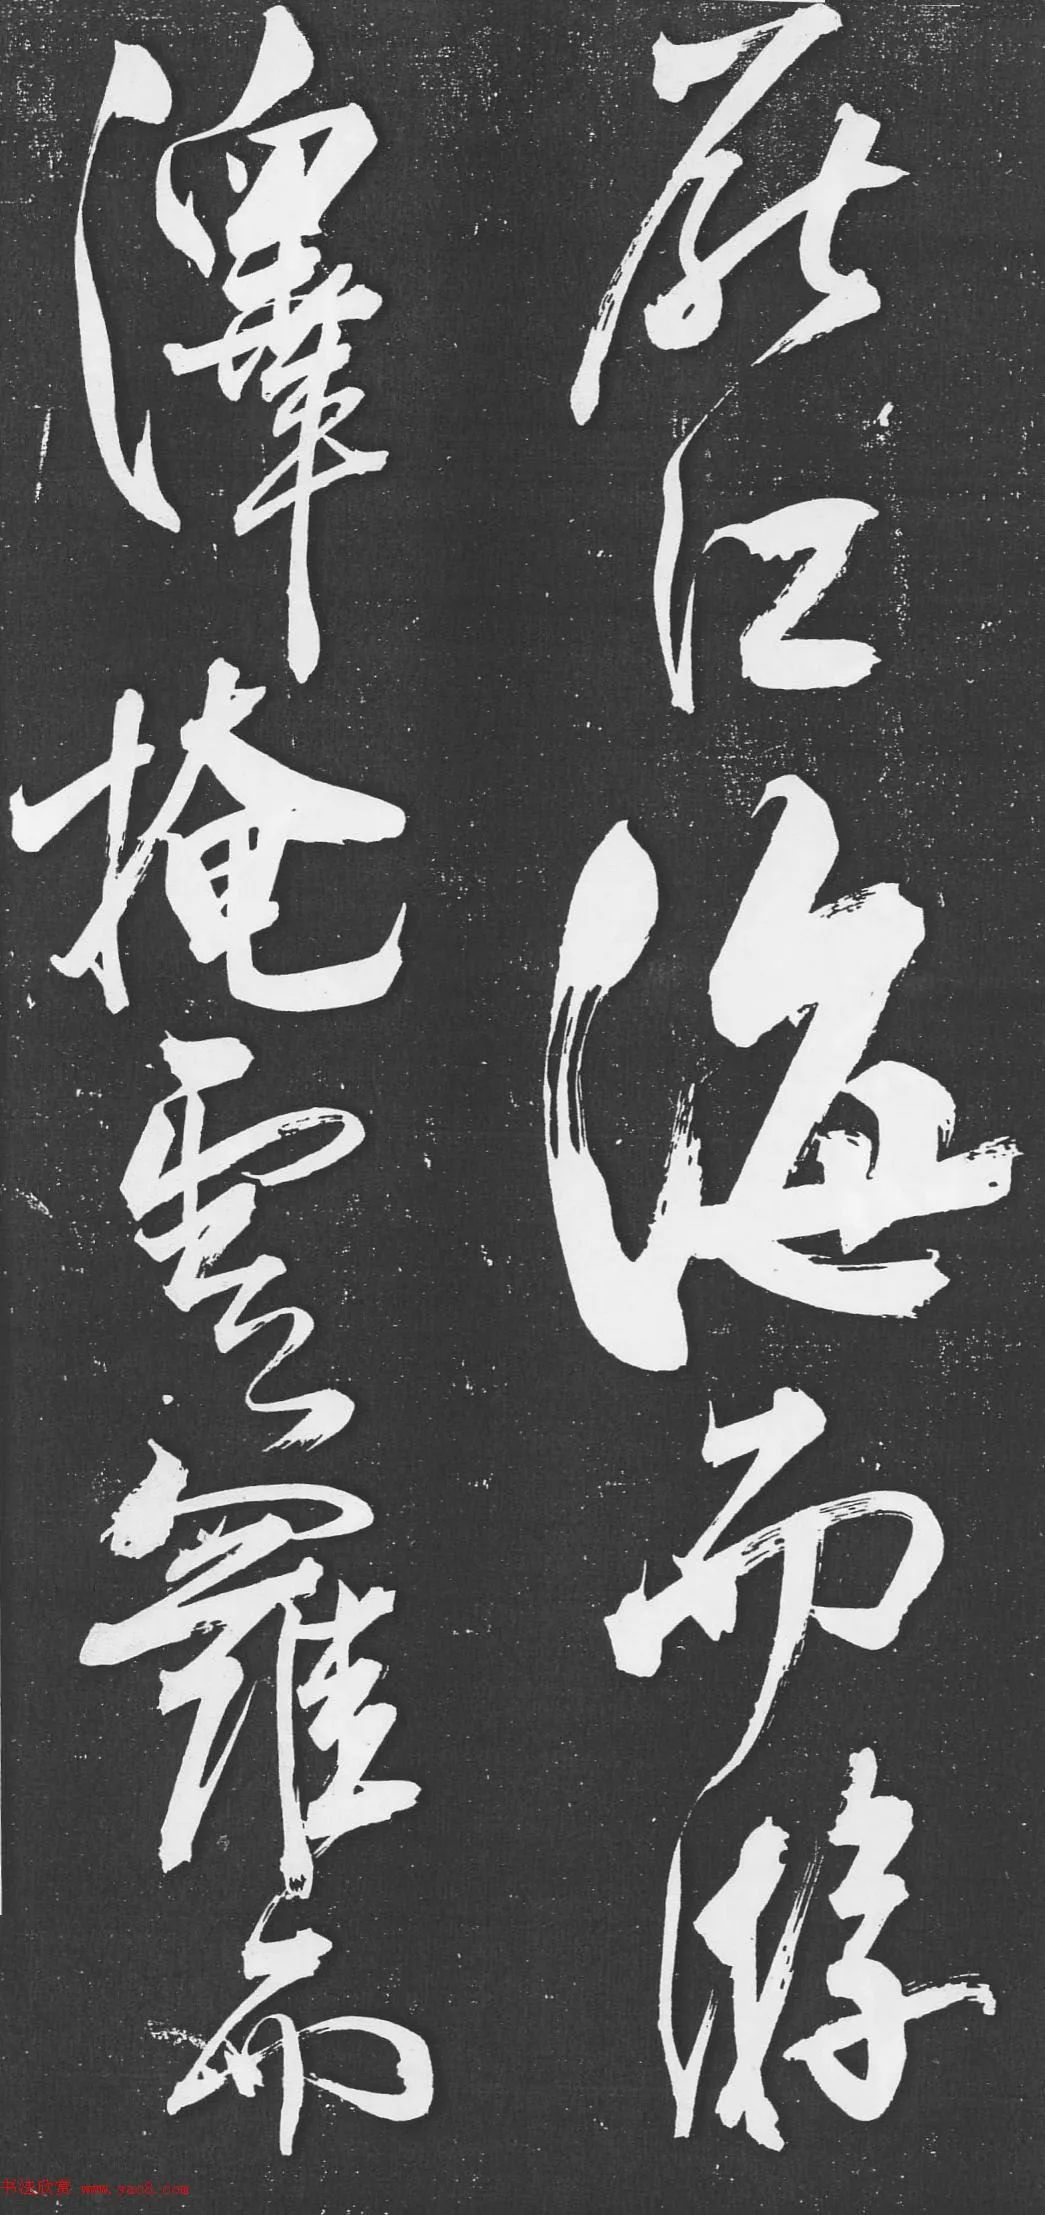 歷江海而游
澤掩雲羅而
书法欣赏 www.yac8.com